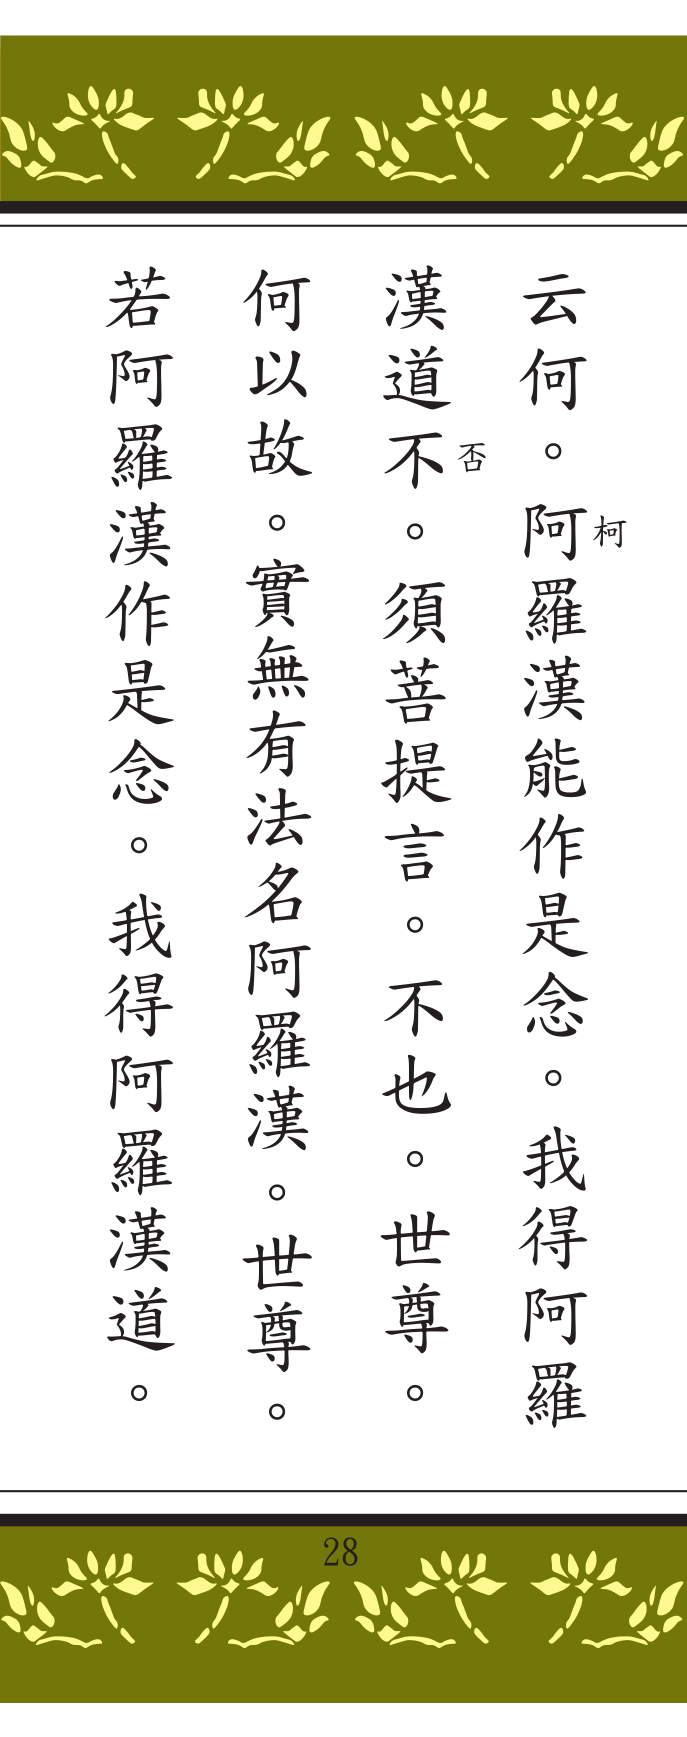 云何。阿羅漢能作是念。我得阿羅
柯
漢道不。須菩提言。不也。世尊。
否
何以故。實無有法名阿羅漢。世尊。
若阿羅漢作是念。我得阿羅漢道。
28